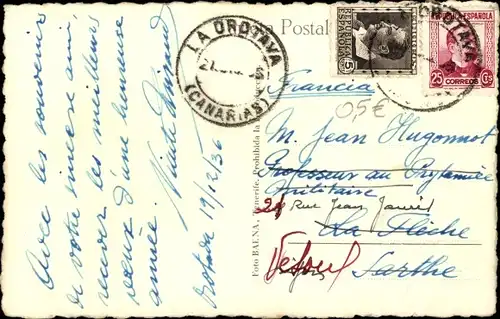 Avec les souvenirs
de votre sincère ami,
recevez les meilleurs
vœux d'une heureuse
année.
Orotava 19/12/36
Foto BAENA, Tenerife. Prohibida la
Postal
LA OROTAVA
(CANARIAS)
5
REPUBLICA ESPAÑOLA
25 CORREOS Cts
OROTAVA
Francia
0,5€
M. Jean Hugonnot
Professeur au Prytanée
militaire
24 Rue Jean Janrès
La Flèche
Vesoul
Sarthe